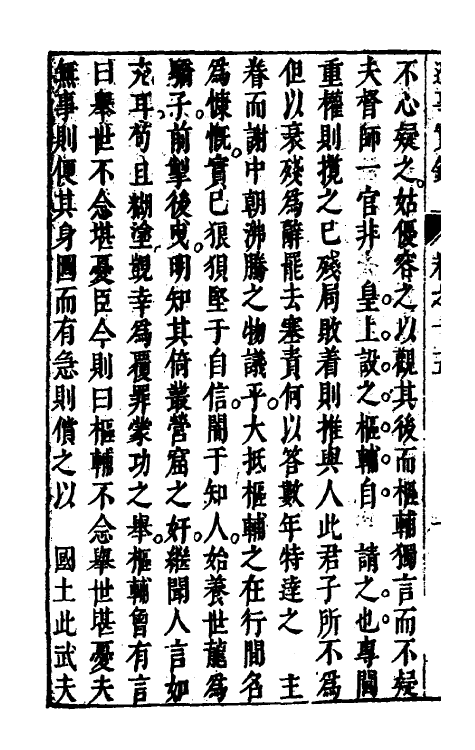 不心疑之姑優容之以觀其後而樞輔獨言而不疑
夫督師一官非　皇上設之樞輔自　請之也專閫
重權則攬之已殘局敗着則推與人此君子所不爲
但以衰殘爲辭罷去塞責何以答數年特達之　主
眷而謝中朝沸騰之物議乎大抵樞輔之在行間名
爲慷慨實已狼狽堅于自信闇于知人始養世龍爲
驕子前掣後曳明知其倚叢營窟之奸繼聞人言如
充耳苟且糊塗覬幸爲覆罪蒙功之舉樞輔曾有言
曰舉世不念堪憂臣今則曰樞輔不念舉世堪憂夫
無事則便其身圖而有急則償之以　國土此武夫